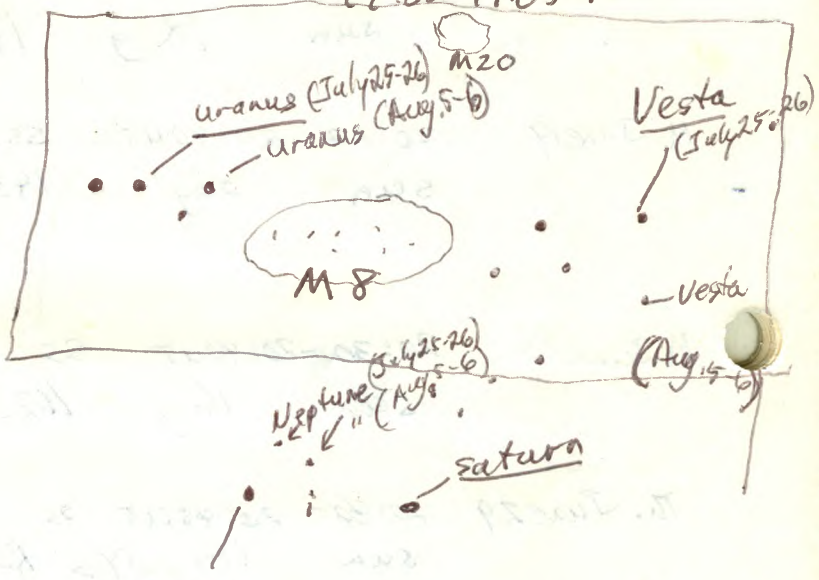 M20
Uranus (July 25-26)
Uranus (Aug. 5-6)
Vesta
(July 25-26)
M 8
Vesta
(Aug. 5-6)
(July 25-26)
Neptune
" (Aug 5-6)
Saturn